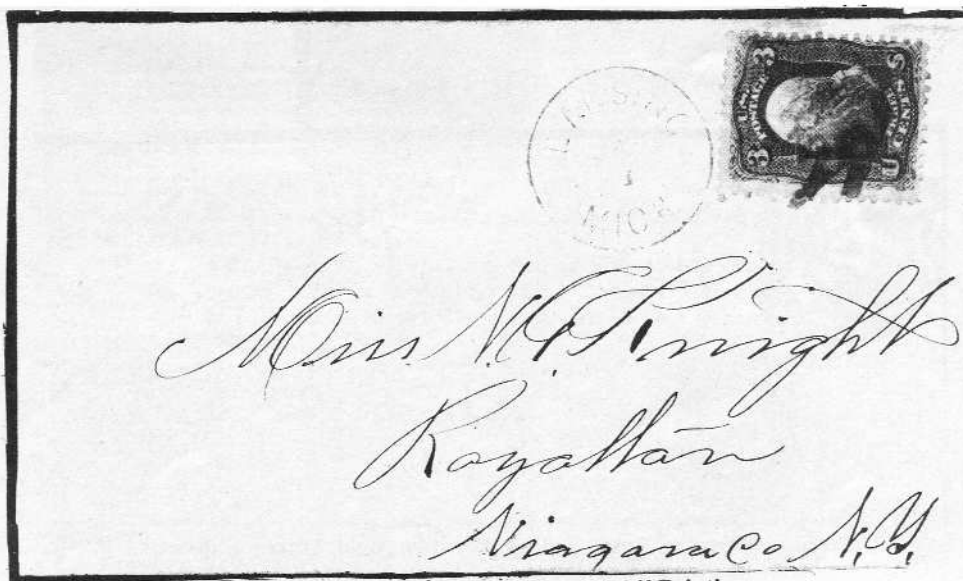 LANSING
1
MICH
3 3
U.S. POSTAGE
U S
Miss N. G. Knight
Royalton
Niagara Co N.Y.